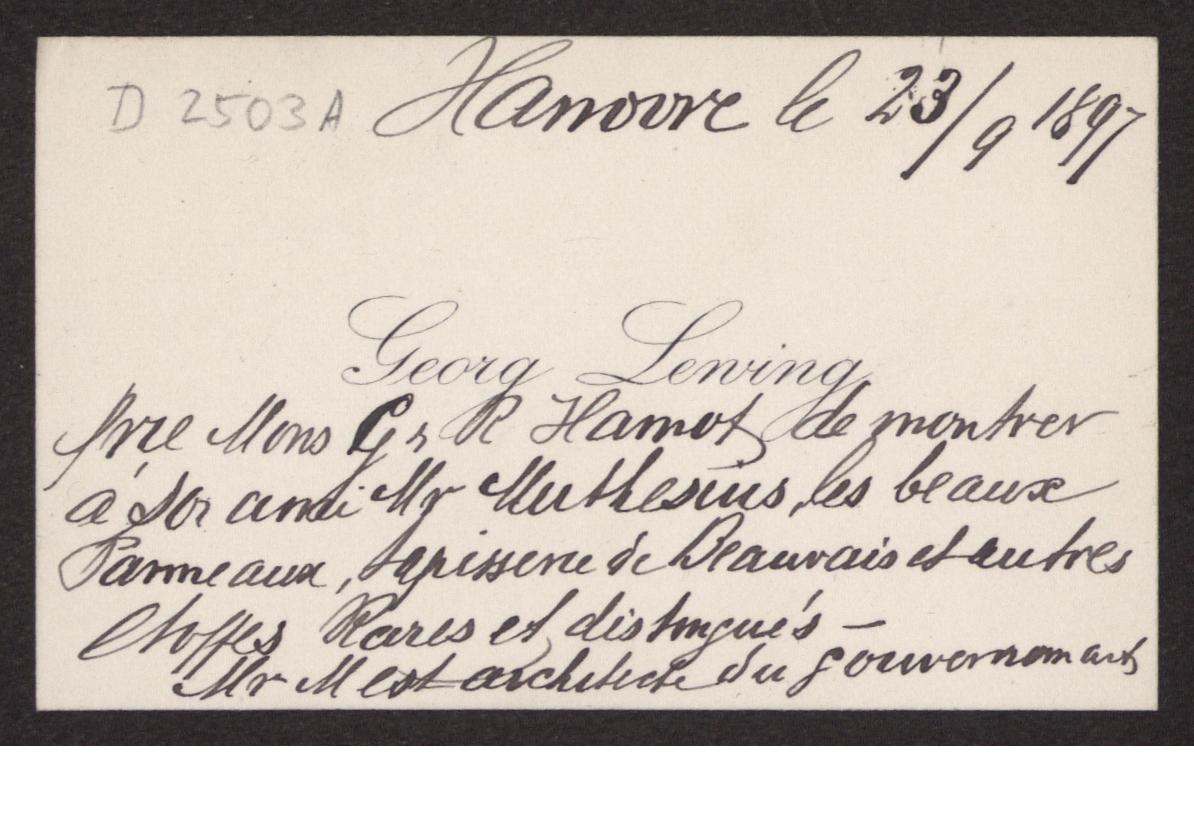 D 2503A Hanovre le 23/9 1897
Georg Lewing
prie Mons G & R Hamot de montrer
à son ami Mr Muthesius, les beaux
Panneaux, tapisserie de Beauvais et autres
étoffes Rares et distingués —
Mr M est architecte du gouvernement